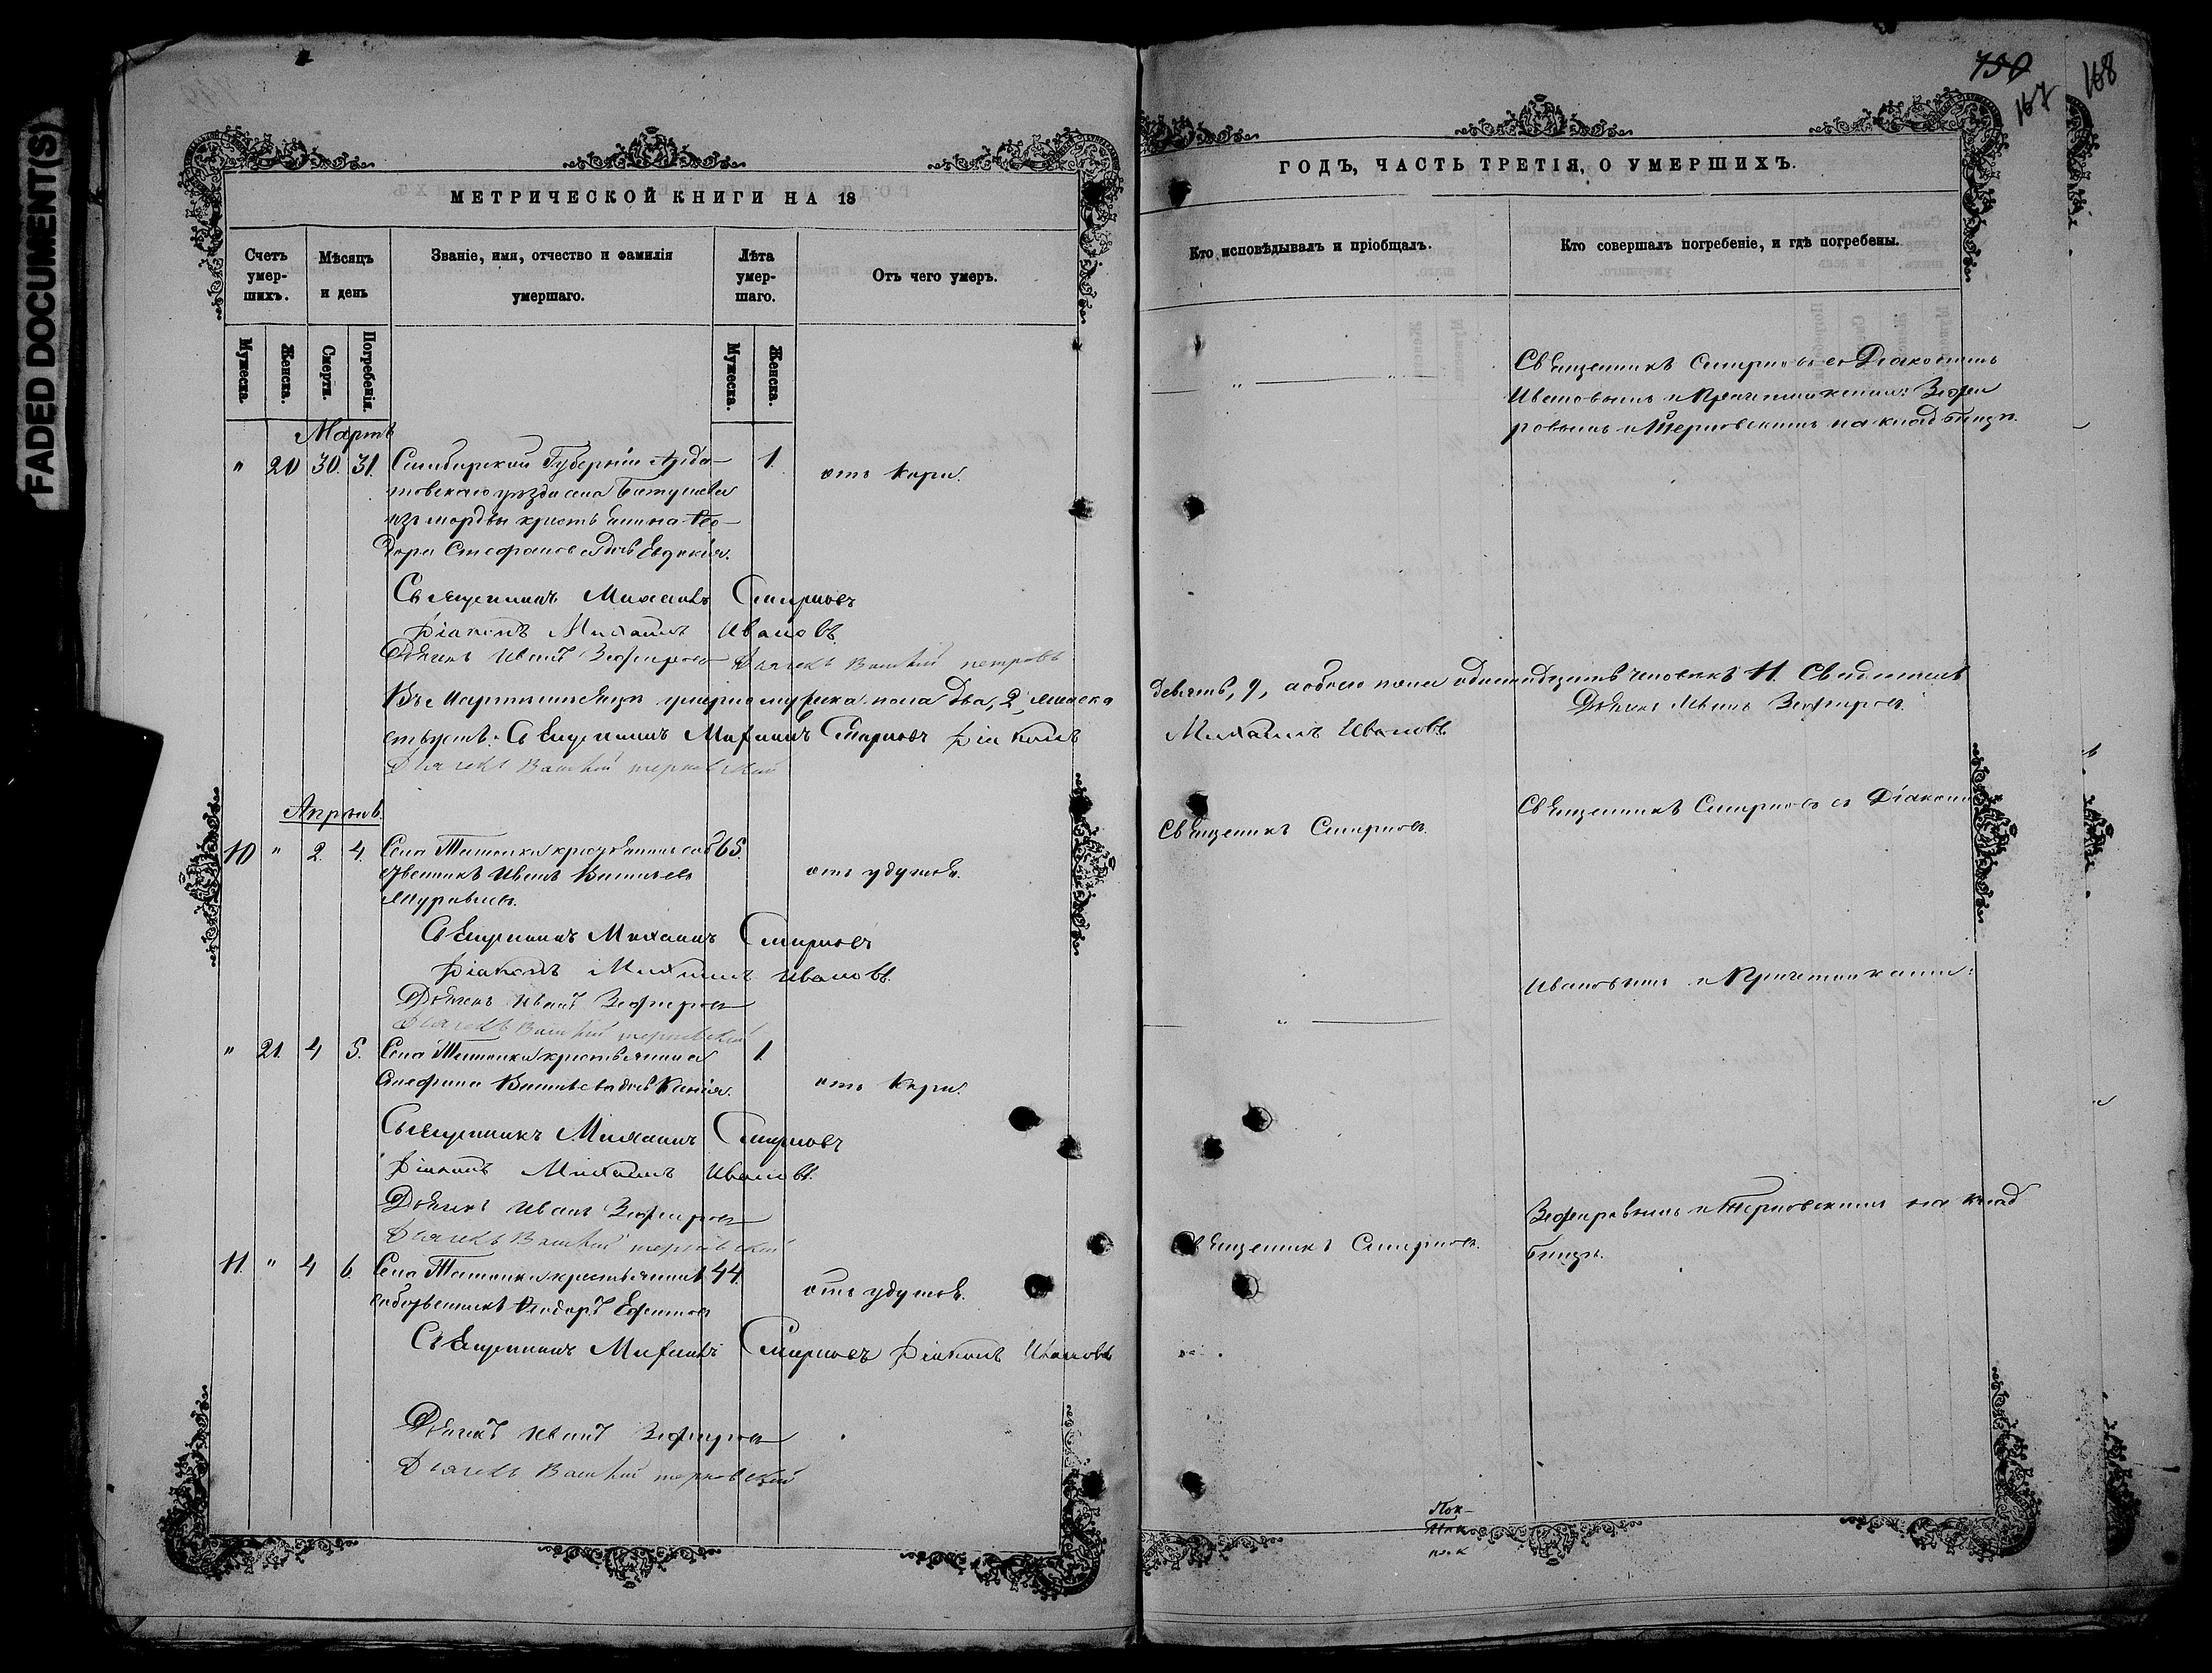 FADED DOCUMENT(S)
МЕТРИЧЕСКОЙ КНИГИ НА 18
Счетъ умер-шихъ.
Мѣсяцъ и день
Званіе, имя, отчество и фамилія умершаго.
Лѣта умер-шаго.
Отъ чего умеръ.
Мужеска.
Женска.
Смерти.
Погребенія.
Мужеска.
Женска.
Мартъ
" 20 30. 31. Симбирской Губерніи Арда- 1. отъ кори.
товскаго уѣзда села
изъ мордвы крестьянина Ѳео-
дора Стефанова дочь Евдокія.
Священникъ Михаилъ Смирновъ
Діаконъ Михаилъ Ивановъ.
Дьячекъ Иванъ Зефировъ Дьячекъ
Въ Мартѣ мѣсяцѣ умерло мужеска пола два, 2, женска
Священникъ Михаилъ Смирновъ Діаконъ
Дьячекъ Василій Терновскій
Апрѣль.
10 " 2. 4. Села крестьянинъ соб 65.
ственникъ Иванъ Васильевъ отъ удушья.
Муравьевъ.
Священникъ Михаилъ Смирновъ
Діаконъ Михаилъ Ивановъ.
Дьячекъ Иванъ Зефировъ
Дьячекъ Василій Терновскій
" 21. 4 5. Села крестьянина 1.
Стефана Васильева дочь Ксенія. отъ кори.
Священникъ Михаилъ Смирновъ
Діаконъ Михаилъ Ивановъ.
Дьячекъ Иванъ Зефировъ
Дьячекъ Василій Терновскій
11. " 4 6. Села крестьянинъ 44.
собственникъ Ѳеодоръ Ефимовъ отъ удушья.
Священникъ Михаилъ Смирновъ Діаконъ Ивановъ
Дьячекъ Иванъ Зефировъ
Дьячекъ Василій Терновскій
150
167
168
ГОДЪ, ЧАСТЬ ТРЕТІЯ, О УМЕРШИХЪ.
Кто исповѣдывалъ и пріобщалъ.
Кто совершалъ погребеніе, и гдѣ погребены.
Священникъ Смирновъ съ Діакономъ
Ивановымъ и Причетниками: Зефи
ровымъ и Терновскимъ на кладбищѣ.
девять, 9, а обоего пола одинадцать человѣкъ 11.
Дьячекъ Иванъ Зефировъ.
Михаилъ Ивановъ.
Священникъ Смирновъ.
Священникъ Смирновъ съ Діакономъ
Ивановымъ и Причетниками:
Зефировымъ и Терновскимъ на клад
бищѣ.
Священникъ Смирновъ.